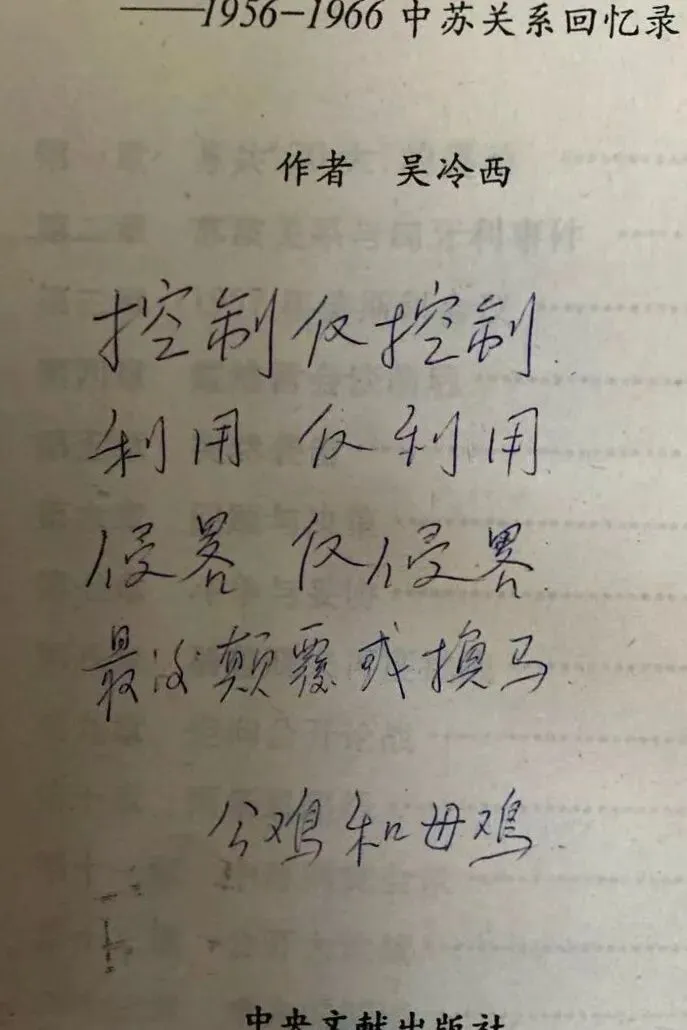 ——1956-1966中苏关系回忆录
作者 吴冷西
控制仅控制
利用仅利用
侵畧仅侵畧
最后颠覆或换马
公鸡和母鸡
中央文献出版社